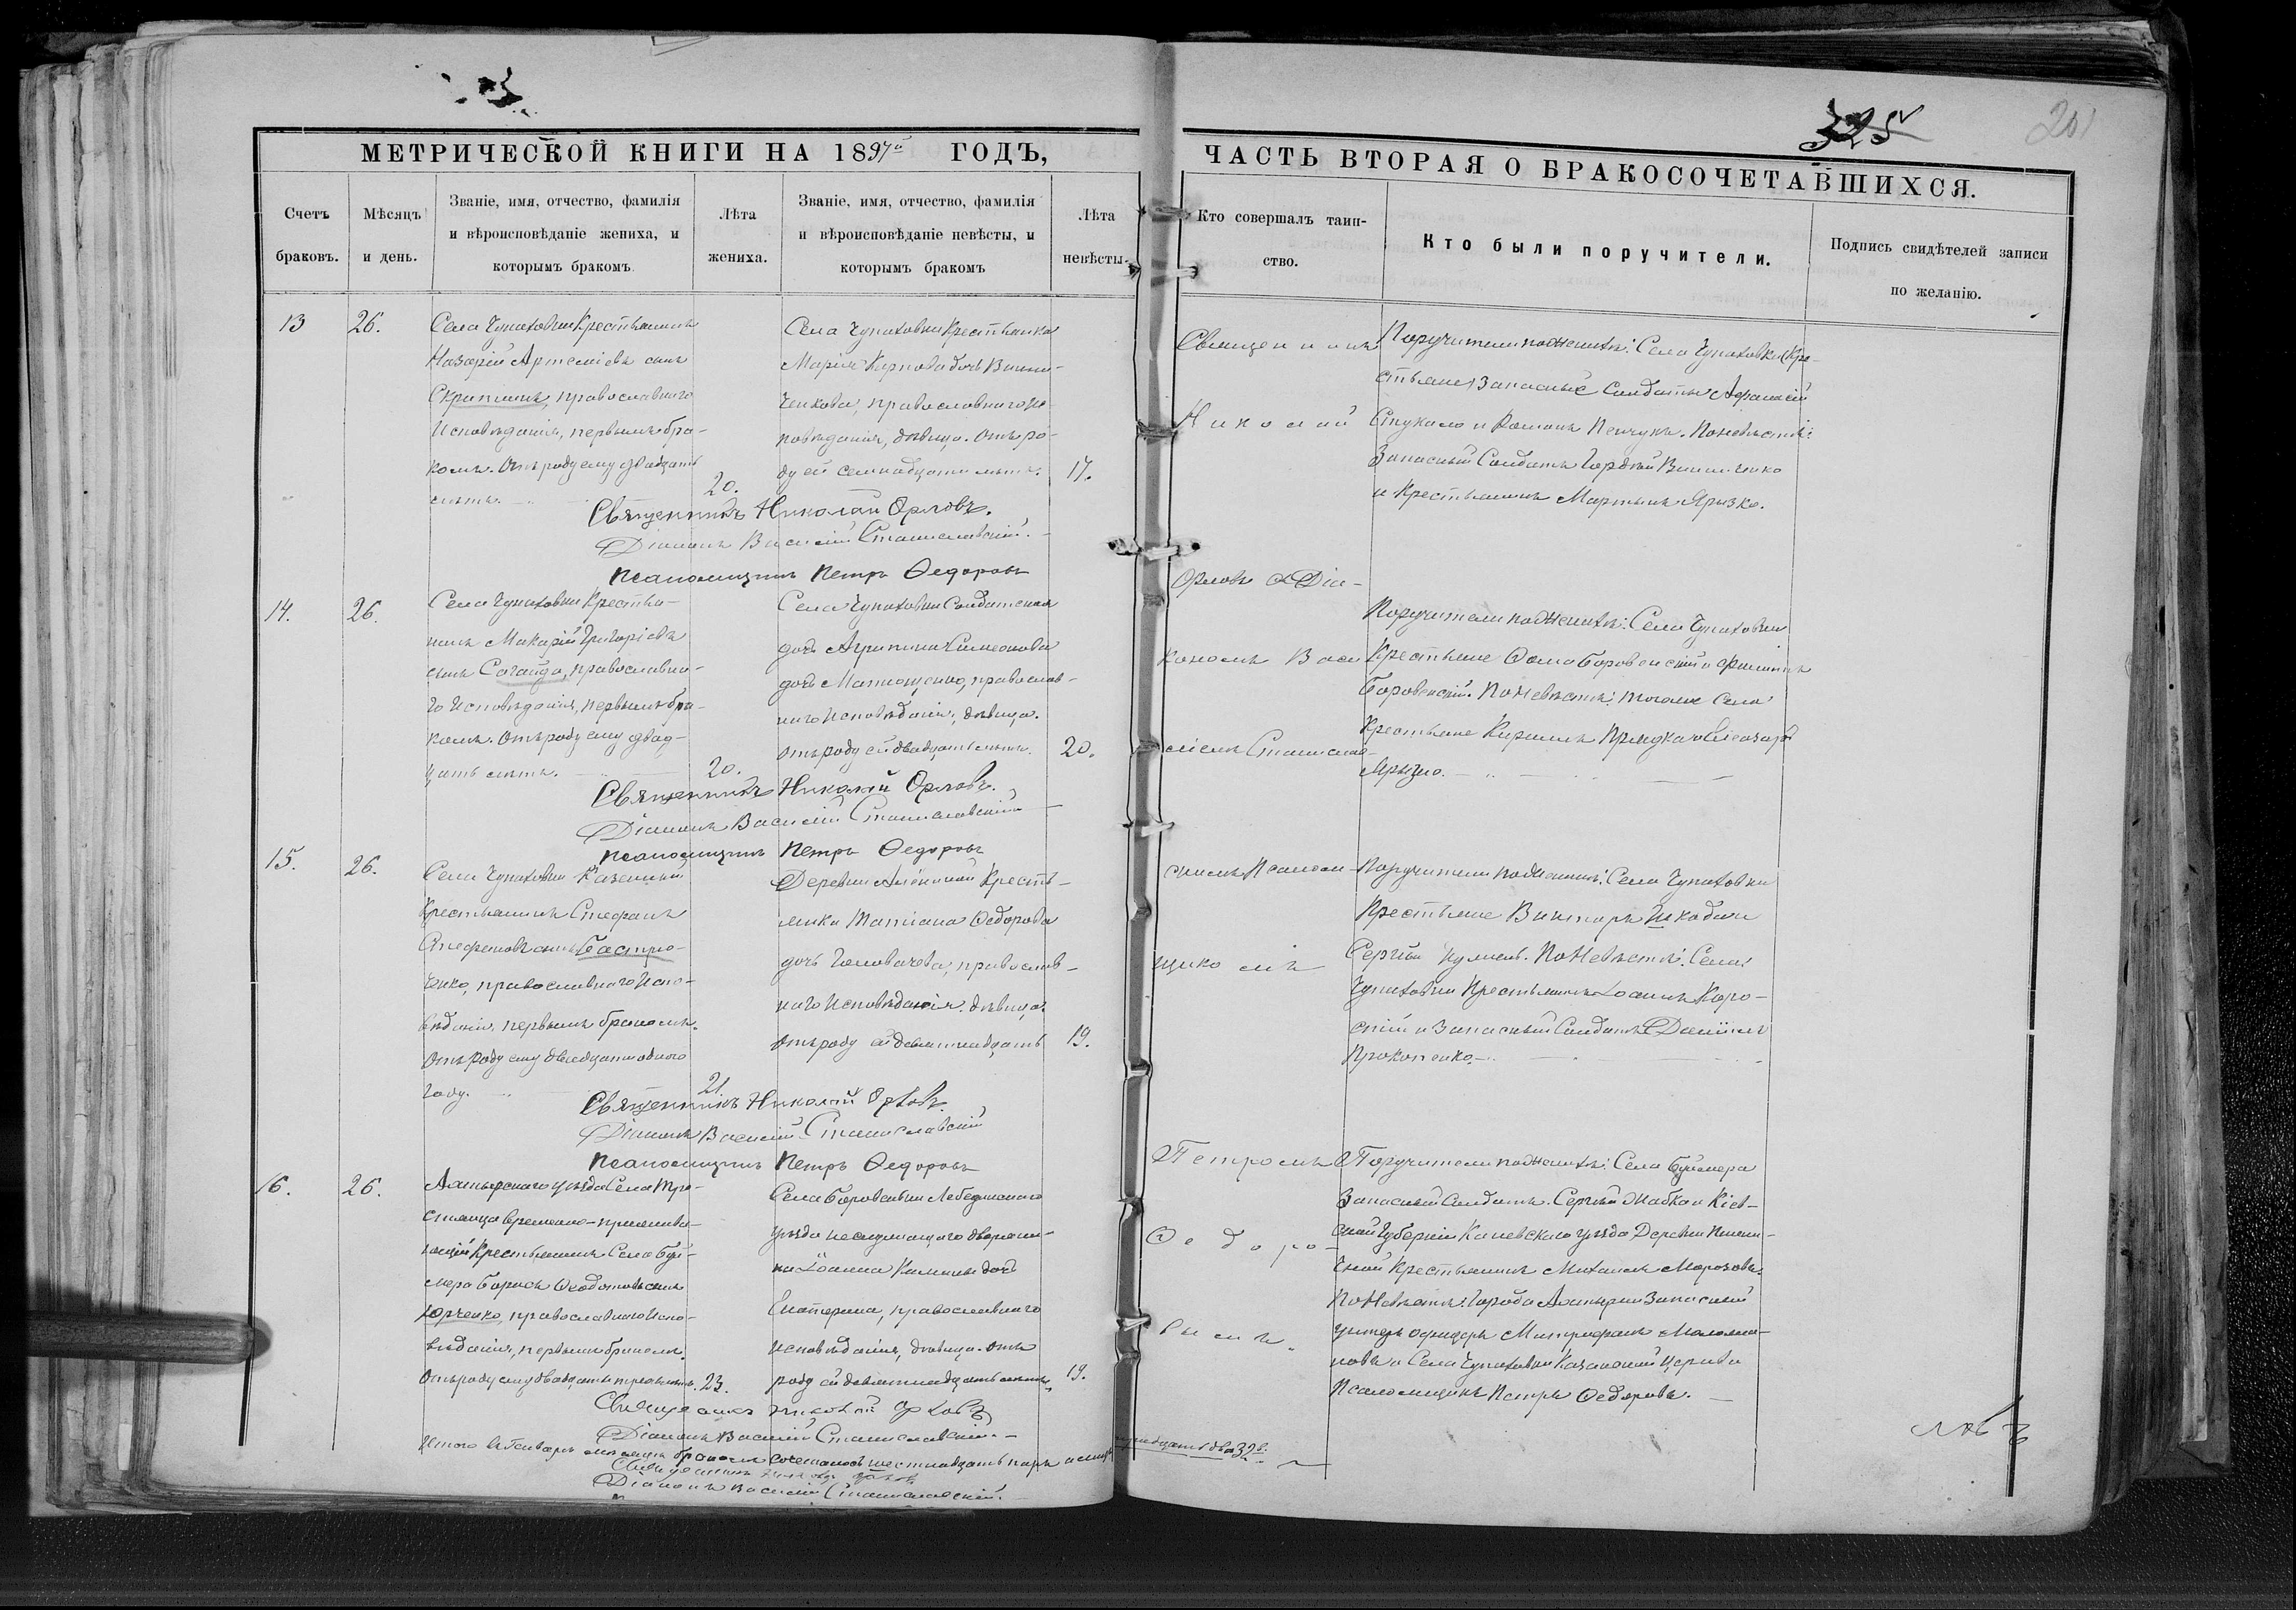 325
201
МЕТРИЧЕСКОЙ КНИГИ НА 1897й ГОДЪ,
ЧАСТЬ ВТОРАЯ О БРАКОСОЧЕТАВШИХСЯ.
Счетъ браковъ.
Мѣсяцъ и день.
Званіе, имя, отчество, фамилія
и вѣроисповѣданіе жениха, и
которымъ бракомъ
Лѣта
жениха.
Званіе, имя, отчество, фамилія
и вѣроисповѣданіе невѣсты, и
которымъ бракомъ
Лѣта
невѣсты.
Кто совершалъ таин-
ство.
Кто были поручители.
Подпись свидѣтелей записи
по желанію.
13
26.
Села Чупаховки Крестьянинъ
Назарій Артеміевъ сынъ
Скрипникъ, православнаго
Исповѣданія, первымъ бра-
комъ. Отъ роду ему двадцать
лѣтъ.
20.
Села Чупаховки Крестьянка
Марія Карпова дочь Винни-
ченкова, православнаго Ис-
повѣданія, дѣвица. Отъ ро-
ду ей семнадцать лѣтъ.
17.
Священникъ
Николай
Поручители по женихѣ: Села Чупаховки Кре-
стьяне запасные Солдаты Афанасій
Стукало и Романъ Пенчукъ. По невѣстѣ:
Запасный Солдатъ Гордѣй Винниченко
и Крестьянинъ Мартынъ Ярызко.
Священникъ Николай Орловъ.
Діаконъ Василій Станиславскій.
Псаломщикъ Петръ Ѳедоровъ
14.
26.
Села Чупаховки Крестья-
нинъ Макарій Григоріевъ
сынъ Согайда, православна-
го Исповѣданія, первымъ бра-
комъ. Отъ роду ему двад-
цать лѣтъ.
20.
Села Чупаховки Солдатская
дочь Агрипина Симеонова
дочь Матющенко, православ-
наго Исповѣданія, дѣвица.
отъ роду ей двадцать лѣтъ.
20.
Орловъ съ Діа-
кономъ Васи-
ліемъ Станислав-
Поручители по женихѣ: Села Чупаховки
Крестьяне Ѳома Боровенскій и Филиппъ
Боровенскій. По невѣстѣ: того же Села
Крестьяне Кириллъ Прядка и Елеазаръ
Ярызко.
Священникъ Николай Орловъ.
Діаконъ Василій Станиславскій
Псаломщикъ Петръ Ѳедоровъ
15.
26.
Села Чупаховки Казенный
Крестьянинъ Стефанъ
Стефановъ сынъ Бастри-
ченко, православнаго Испо-
вѣданія, первымъ бракомъ.
Отъ роду ему двадцать одного
году.
21.
Деревни Алёшиной Кресть-
янка Татіана Ѳедорова
дочь Головачева, православ-
наго Исповѣданія, дѣвица.
Отъ роду ей девятнадцать
19.
скимъ Псалом-
щикомъ
Поручители по женихѣ: Села Чупаховки
Крестьяне Викторъ Шкода и
Сергѣй Кулишъ. По невѣстѣ: Села
Чупаховки Крестьянинъ Іоаннъ Коро-
скій и Запасный Солдатъ Даніилъ
Прокопенко.
Священникъ Николай Орловъ.
Діаконъ Василій Станиславскій
Псаломщикъ Петръ Ѳедоровъ
16.
26.
Ахтырскаго уѣзда Села Тро-
стянца временно-прожива-
ющій Крестьянинъ Села Буй-
мера Борисъ Ѳеодотовъ сынъ
Юрченко, православнаго Испо-
вѣданія, первымъ бракомъ.
Отъ роду ему двадцать три лѣтъ.
23.
Села Боровеньки Лебединскаго
уѣзда неслужащаго дворяни-
на Іоанна дочь
Екатерина, православнаго
исповѣданія, дѣвица. Отъ
роду ей девятнадцать лѣтъ.
19.
Петромъ
Ѳедоро-
вымъ.
Поручители по женихѣ: Села Буймера
Запасный Солдатъ Сергѣй Жабко и Кіев-
ской Губерніи Каневскаго уѣзда Деревни
Крестьянинъ Михаилъ Морозовъ.
По невѣстѣ: Города Ахтырки Запасный
унтеръ офицеръ Митрофанъ
и Села Чупаховки Казанской Церкви
Псаломщикъ Петръ Ѳедоровъ.
Священникъ Николай Орловъ
Діаконъ Василій Станиславскій.
Итого въ Январѣ мѣсяцѣ бракомъ сочеталось шестнадцать паръ
тридцать два 32.
Священникъ Николай Орловъ
Діаконъ Василій Станиславскій.